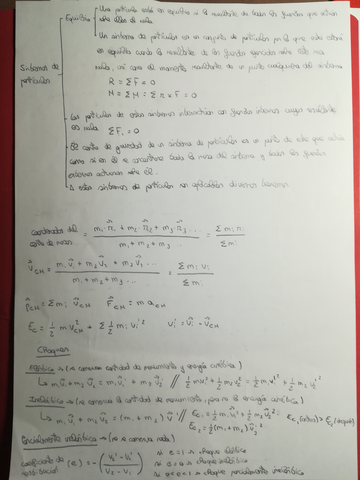 Sistemas de partículas
Equilibrio
Una partícula está en equilibrio si la resultante de todas las fuerzas que actúan sobre ella es nula
Un sistema de partículas es un conjunto de partículas por lo que este estará
en equilibrio cuando la resultante de las fuerzas ejercidas sobre este sea
nula, así como el momento resultante de un punto cualquiera del sistema
R = ΣF = 0
M = ΣM = Σ r × F = 0
Las partículas de estos sistemas interaccionan con fuerzas internas cuyas resultante
es nula ΣF₁ = 0
El centro de gravedad de un sistema de partículas es un punto de este que actúa
como si en él se concentrase toda la masa del sistema y todas las fuerzas
externas actuaran sobre él.
A estos sistemas de partículas son aplicables diversos teoremas
coordenadas del centro de masas = m₁ r₁ + m₂ r₂ + m₃ r₃ ... / m₁ + m₂ + m₃ ... = Σ mᵢ rᵢ / Σ mᵢ
v CM = m₁ v₁ + m₂ v₂ + m₃ v₃ ... / m₁ + m₂ + m₃ ... = Σ mᵢ vᵢ / Σ mᵢ
p CM = Σ mᵢ v CM F CM = m a CM
Ec = 1/2 m v² CM + Σ 1/2 mᵢ vᵢ'² vᵢ' = vᵢ - v CM
Choques
Elástico → (se conserva cantidad de movimiento y energía cinética)
↳ m₁ v₁ + m₂ v₂ = m₁ v₁' + m₂ v₂' // 1/2 m₁v₁² + 1/2 m₂ v₂² = 1/2 m₁ v₁'² + 1/2 m₂ v₂'²
Inelástico → (se conserva la cantidad de movimiento, pero no la energía cinética)
↳ m₁ v₁ + m₂ v₂ = (m₁ + m₂) v // Ec₁ = 1/2 m₁ v₁² + 1/2 m₂ v₂²
Parcialmente inelástico → (no se conserva nada)
coeficiente de (e) = - (v₂' - v₁' / v₂ - v₁)
si e = 1 → choque elástico
si e = 0 → choque inelástico
si 0 < e < 1 → choque parcialmente inelástico